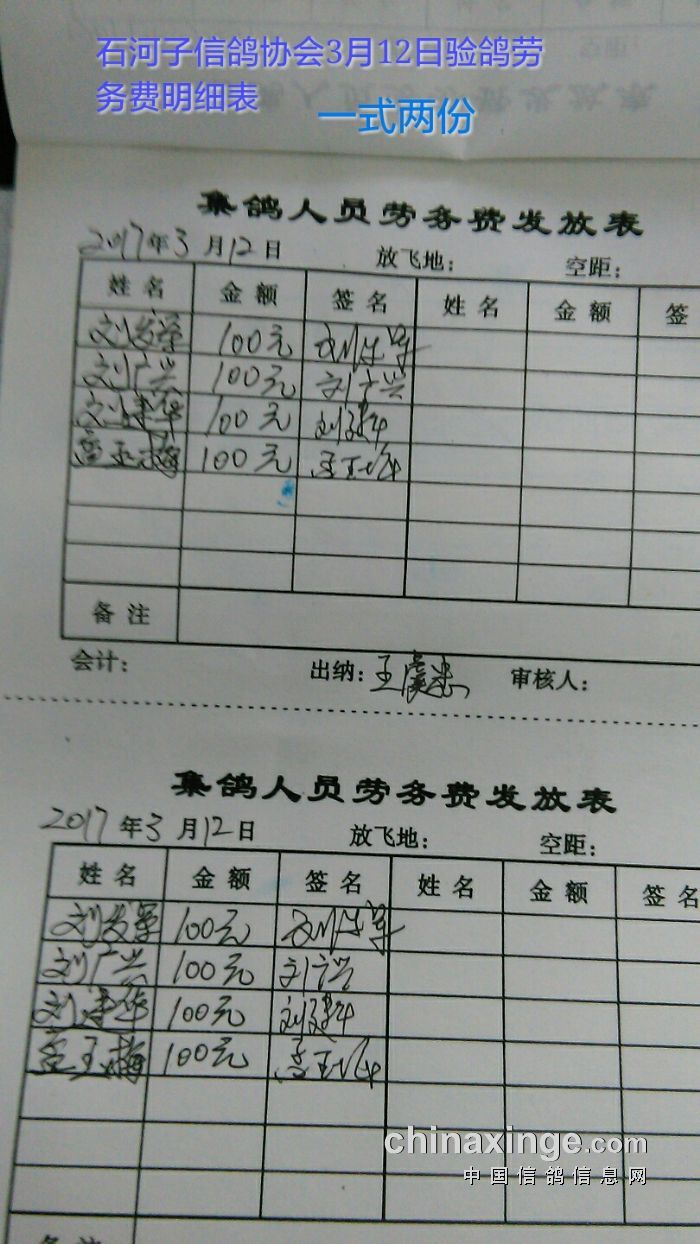 石河子信鸽协会3月12日验鸽劳
务费明细表
一式两份
集鸽人员劳务费发放表
2017年3月12日 放飞地： 空距：
姓名 金额 签名 姓名 金额 签
刘发军 100元
刘广兴 100元 刘广兴
刘建华 100元 刘建华
100元
备注
会计： 出纳： 审核人：
集鸽人员劳务费发放表
2017年3月12日 放飞地： 空距：
姓名 金额 签名 姓名 金额 签名
刘发军 100元
刘广兴 100元 刘广兴
刘建华 100元 刘建华
100元
chinaxinge.com
中国信鸽信息网
备注